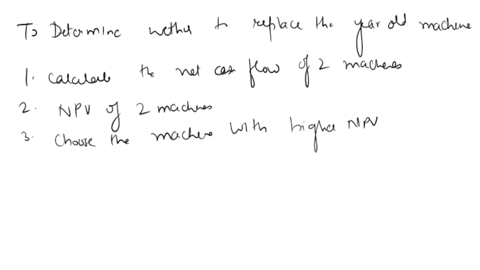 To Determine wether to replace the year old machine
1. Calculate the net cash flow of 2 machines
2. NPV of 2 machines
3. Choose the machine with higher NPV